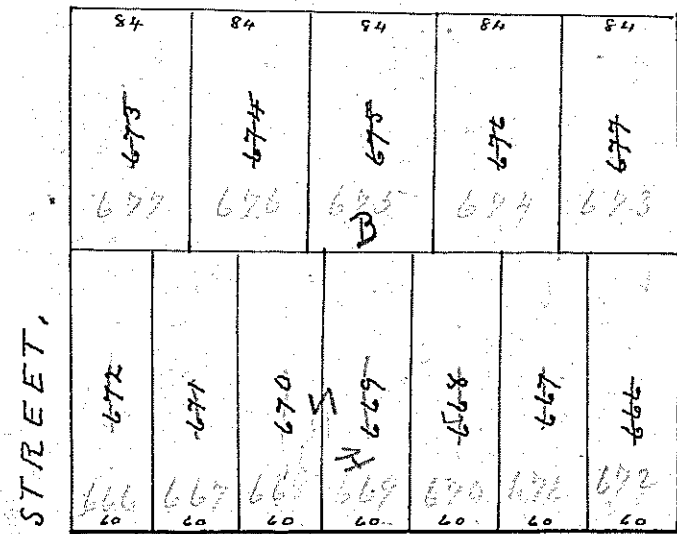 84 84 84 84 84
673 674 675 676 677
677 676 675 674 673
B
STREET,
672 671 670 669 668 667 666
666 667 669 670 671 672
60 60 60 60 60 60 60